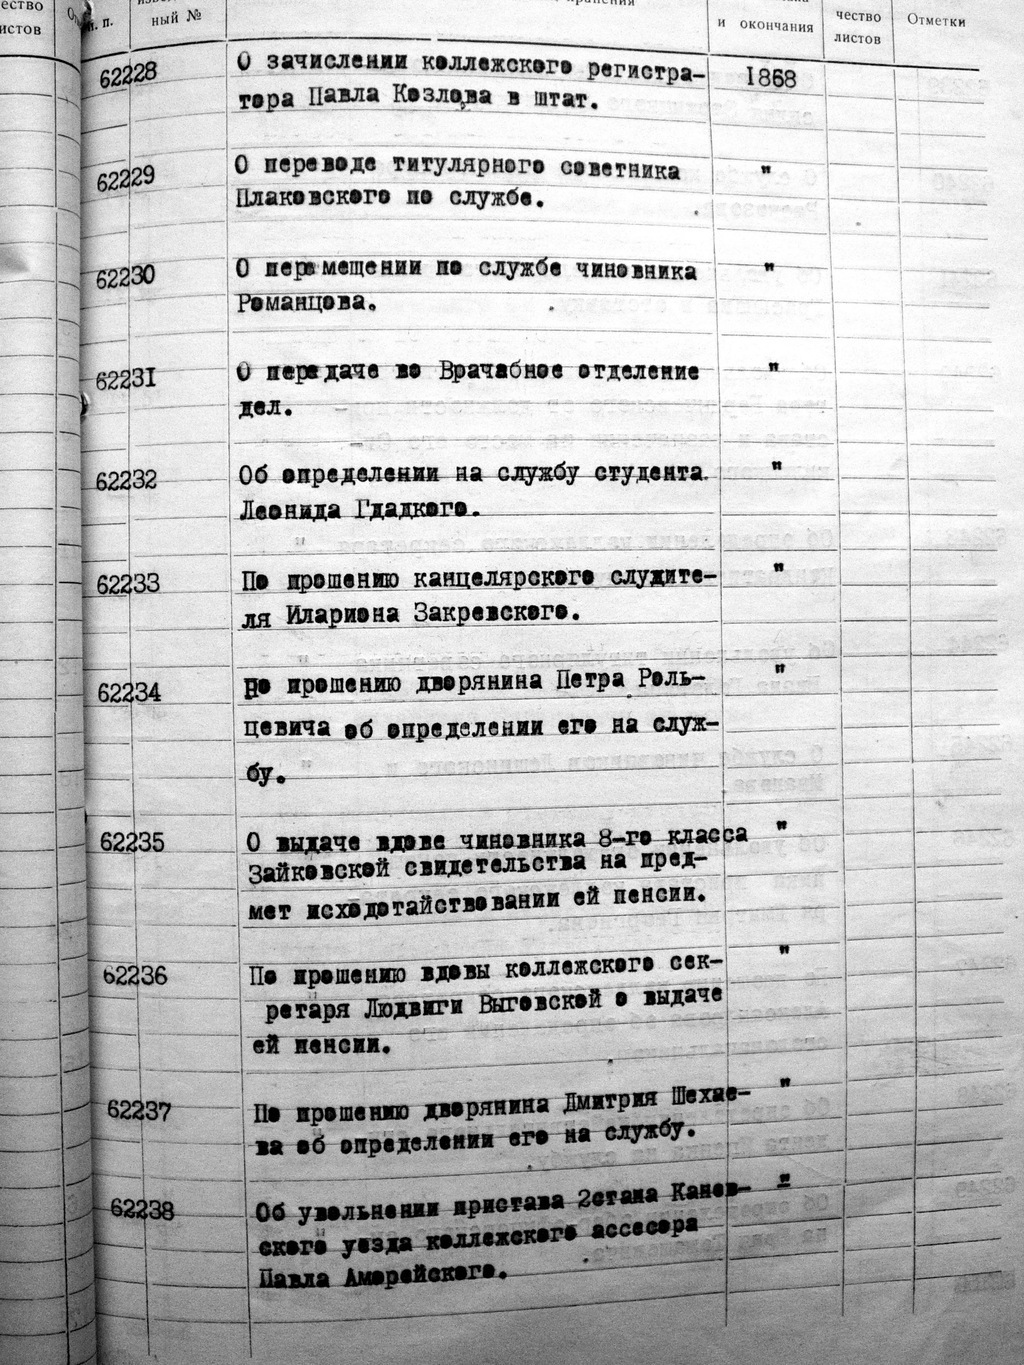 ество
истов
п. п.
ный №
и окончания
чество
листов
Отметки
62228 О зачислении коллежского регистра- 1868
тора Павла Козлова в штат.
62229 О переводе титулярного советника "
Плаковского по службе.
62230 О перемещении по службе чиновника "
Романцова.
62231 О передаче во Врачабное отделение "
дел.
62232 Об определении на службу студента "
Леонида Гдадкого.
62233 По прошению канцелярского служите- "
ля Илариона Закревского.
62234 По прошению дворянина Петра Роль- "
цевича об определении его на служ-
бу.
62235 О выдаче вдове чиновника 8-го класса "
Зайковской свидетельства на пред-
мет исходотайствовании ей пенсии.
62236 По прошению вдовы коллежского сек- "
ретаря Людвиги Выговской о выдаче
ей пенсии.
62237 По прошению дворянина Дмитрия Шехае- "
ва об определении его на службу.
62238 Об увольнении пристава 2стана Канев- "
ского уезда коллежского ассесора
Павла Аморейского.